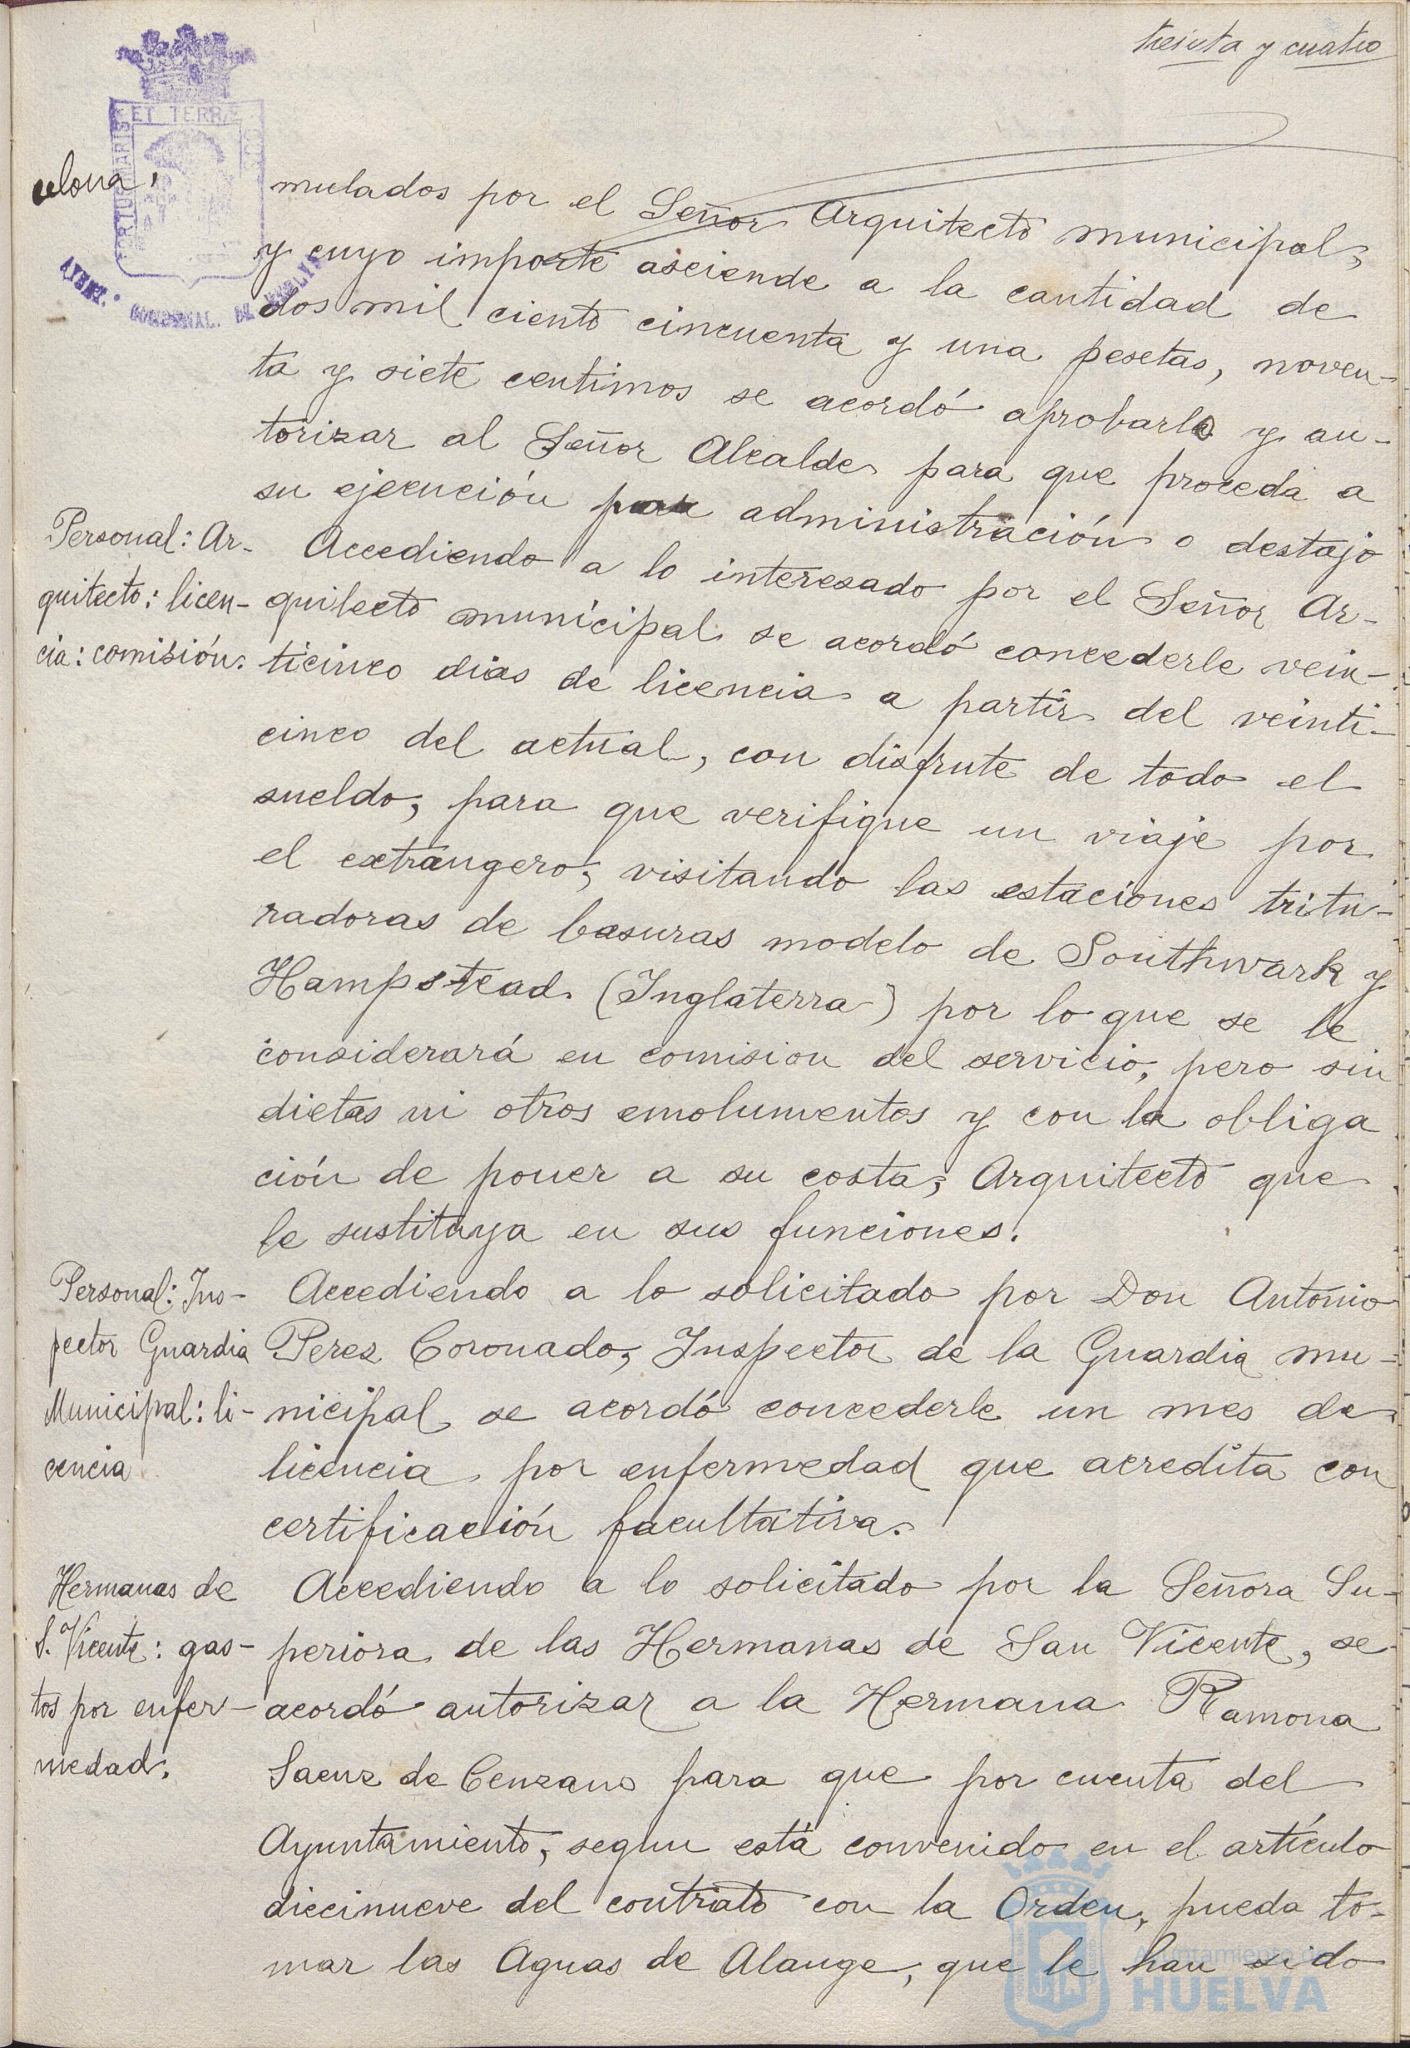 treinta y cuatro
ET TERRÆ
PORTUS MARIS
AYUNT.
DE HUELVA
mulados por el Señor Arquitecto municipal,
y cuyo importe asciende a la cantidad de
dos mil ciento cincuenta y una pesetas, noven-
ta y siete centimos se acordó aprobarlo y au-
torizar al Señor Alcalde para que proceda a
su ejecución por administración o destajo
Personal: Ar-
quitecto: licen-
cia: comisión.
Accediendo a lo interesado por el Señor Ar-
quitecto municipal se acordó concederle vein-
ticinco dias de licencia a partir del veinti-
cinco del actual, con disfrute de todo el
sueldo, para que verifique un viaje por
el extrangero, visitando las estaciones tritu-
radoras de basuras modelo de Southwark y
Hampstead (Inglaterra) por lo que se le
considerará en comision del servicio, pero sin
dietas ni otros emolumentos y con la obliga
ción de poner a su costa, Arquitecto que
le sustituya en sus funciones.
Personal: Ins-
pector Guardia
Municipal: li-
cencia
Accediendo a lo solicitado por Don Antonio
Perez Coronado, Inspector de la Guardia mu-
nicipal se acordó concederle un mes de
licencia por enfermedad que acredita con
certificación facultativa.
Hermanas de
S. Vicente: gas-
tos por enfer-
medad.
Accediendo a lo solicitado por la Señora Su-
periora de las Hermanas de San Vicente, se
acordó autorizar a la Hermana Ramona
Saenz de Cenzano para que por cuenta del
Ayuntamiento, segun está convenido en el artículo
diecinueve del contrato con la Orden, pueda to-
mar las Aguas de Alange, que le han sido
Ayuntamiento de
HUELVA